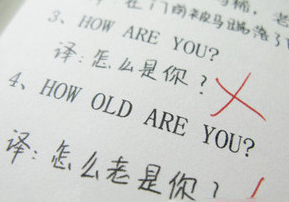 在门闩被马踢落了
3、HOW ARE YOU?
译:怎么是你?
4、HOW OLD ARE YOU?
译:怎么老是你?